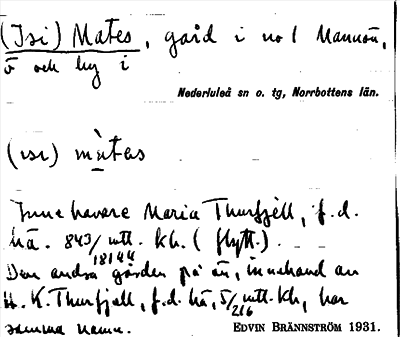 (Isi) Mates, gård i no 1 Mannön,
ö och by i
Nederluleå sn o. tg, Norrbottens län.
(ısı) mà̱tas
Innehavare Maria Thurfjell, f. d.
hä. 843/18144 mtl. kh. (flytt.)
Den andra gården på ön, innehavd av
H. K. Thurfjell, f. d. hä, 5/216 mtl. kh, har
samma namn.
EDVIN BRÄNNSTRÖM 1931.